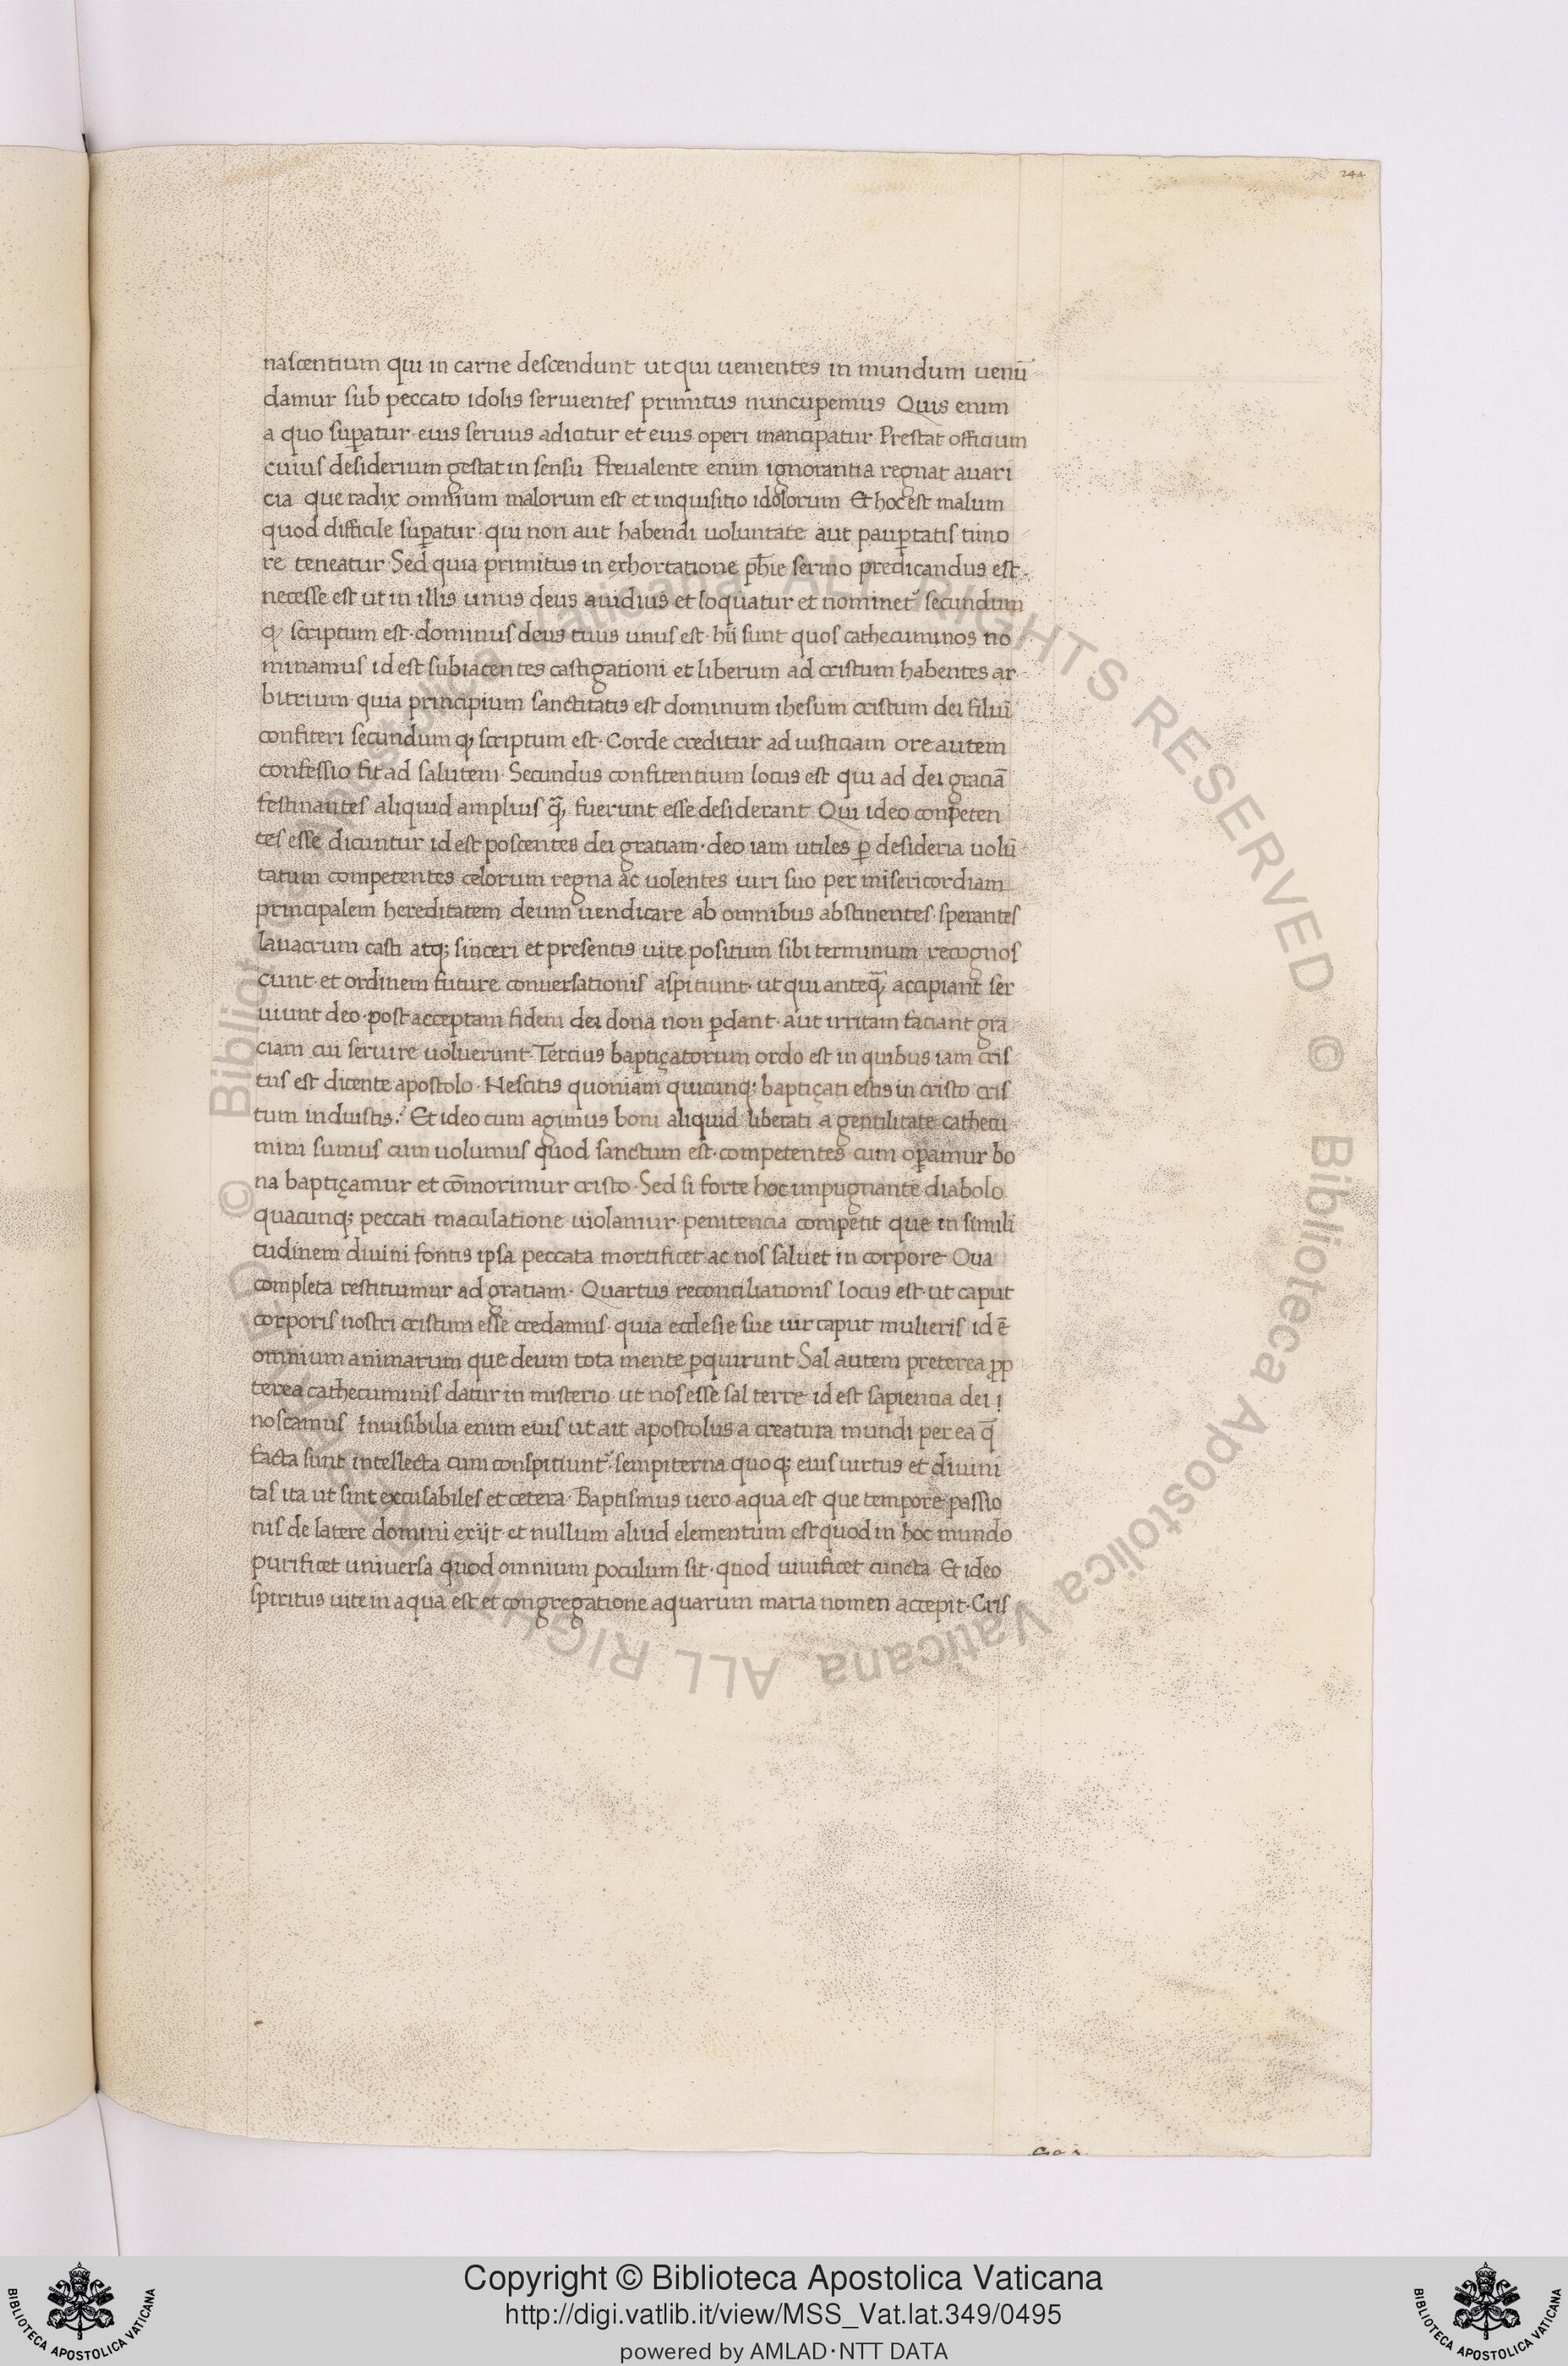 244
nascentium qui in carne descendunt ut qui uenientes in mundum uenū
damur sub peccato idolis seruientes primitus nuncupemus Quis enim
a quo suꝑatur· eius seruus adicitur et eius operi mancipatur Prestat officium
cuius desiderium gestat in sensu Preualente enim ignorantia regnat auari
cia que radix omnium malorum est et inquisitio idolorum Et hoc est malum
quod difficile suꝑatur· qui non aut habendi uoluntate aut pauꝑtatis timo
re teneatur Sed quia primitus in exhortatione ꝓhie sermo predicandus est
necesse est ut in illis unus deus auidius et loquatur et nominet᷑ secundum
ꝙ scriptum est· dominus deus tuus unus est· hii sunt quos cathecuminos no
minamus id est subiacentes castigationi et liberum ad cristum habentes ar
bitrium quia principium sanctitatis est dominum ihesum cristum dei filiū
confiteri secundum ꝙ scriptum est· Corde creditur ad iusticiam ore autem
confessio fit ad salutem· Secundus confitentium locus est qui ad dei graciā
festinantes aliquid amplius ꝙ̄ fuerunt esse desiderant Qui ideo conpeten
tes esse dicuntur id est poscentes dei gratiam· deo iam utiles ꝑ desideria uolū
tatum competentes celorum regna ac uolentes iuri suo per misericordiam
principalem hereditatem deum uendicare ab omnibus abstinentes· sperantes
lauacrum casti atq; sinceri et presentis uite positum sibi terminum recognos
cunt· et ordinem future conuersationis aspiciunt· ut qui anteꝙ̄ accipiant ser
uiunt deo· post acceptam fidem dei dona non ꝑdant· aut irritam faciant gra
ciam cui seruire uoluerunt· Tercius baptiçatorum ordo est in quibus iam cris
tus est dicente apostolo· Nescitis quoniam quicunq; baptiçati estis in cristo cris
tum induistis? Et ideo cum agimus boni aliquid liberati a gentilitate cathecu
mini sumus cum uolumus quod sanctum est· competentes cum oꝑamur bo
na baptiçamur et cōmorimur cristo· Sed si forte hoc impugnante diabolo
quacunq; peccati maculatione uiolamur· penitencia competit que in simili
tudinem diuini fontis ipsa peccata mortificet ac nos saluet in corpore Qua
completa restituimur ad gratiam· Quartus reconciliationis locus est· ut caput
corporis nostri cristum esse credamus· quia ecclesie sue uir caput mulieris id ē
omnium animarum que deum tota mente ꝑquirunt Sal autem preterea ꝓp
terea cathecuminis datur in misterio ut nos esse sal terre id est sapiencia dei i
noscamus Inuisibilia enim eius ut ait apostolus a creatura mundi per ea q̄
facta sunt intellecta cum conspiciunt᷑· sempiterna quoq; eius uirtus et diuini
tas ita ut sint excusabiles et cetera· Baptismus uero aqua est que tempore passio
nis de latere domini exijt et nullum aliud elementum est quod in hoc mundo
purificet uniuersa quod omnium poculum sit· quod uiuificet cuncta Et ideo
spiritus uite in aqua est et congregatione aquarum maria nomen accepit· Cris
© Biblioteca Apostolica Vaticana ALL RIGHTS RESERVED © Biblioteca Apostolica Vaticana ALL RIGHTS RESERVED
Copyright © Biblioteca Apostolica Vaticana
http://digi.vatlib.it/view/MSS_Vat.lat.349/0495
powered by AMLAD·NTT DATA
BIBLIOTECA APOSTOLICA VATICANA
BIBLIOTECA APOSTOLICA VATICANA